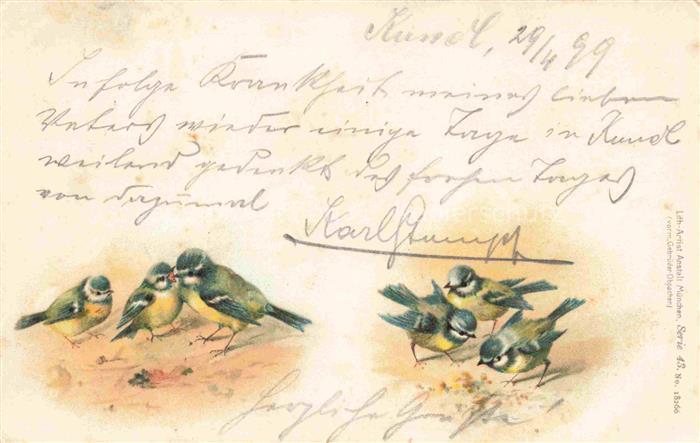 Kundl, 29/4 99
Infolge Krankheit meines lieben
Vaters wieder einige Tage in Kundl
weilend gedenkt des frohen Tages
von dazumal
Karl Stumpf
Herzliche Grüße!
Lith.-Artist Anstalt München, Serie 43, No. 18266
(vorm. Gebrüder Obpacher)